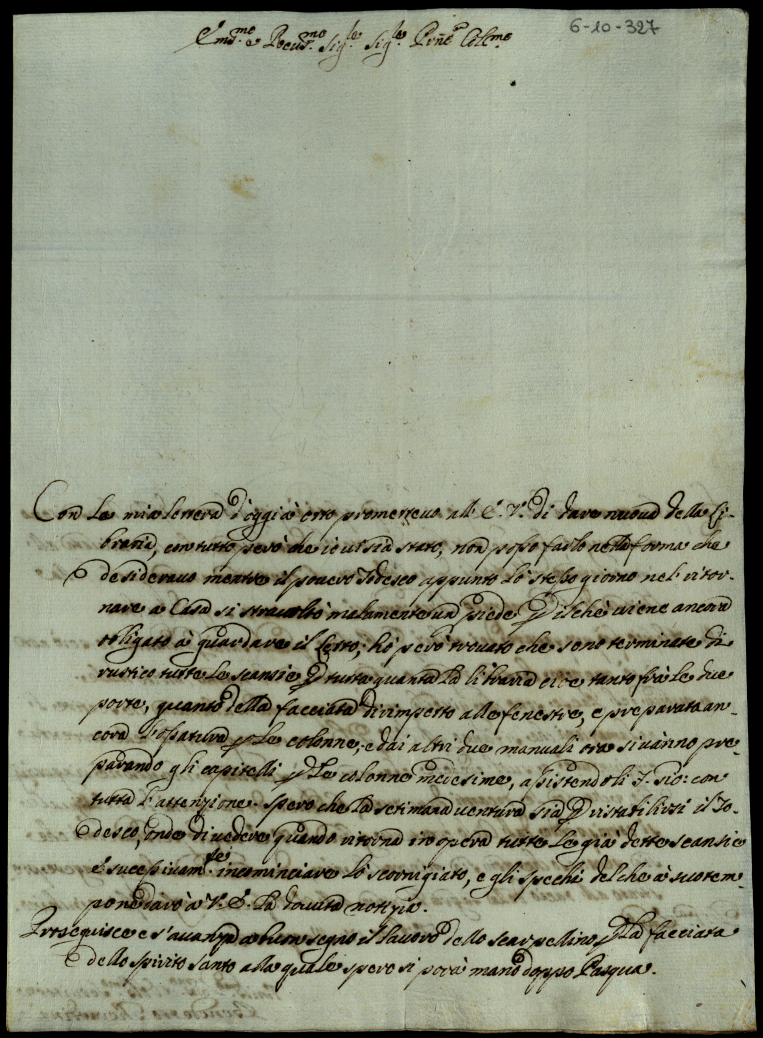 6-10-327
Em.mo e Rev.mo Sig.le Sig.le P.rne Coll.mo
Con la mia lettera d'oggi à otto promettevo all' E. V. di dare nuova della Li-
braria, con tutto però che io vi sia stato, non posso farlo nella forma che
desideravo mentre il povero Todesco appunto lo stesso giorno nel ritor-
nare a Casa si stravoltò malamente un piede p. il che viene ancora
obligato à guardare il Letto; hò però trovato che sono terminate di
rustico tutte le scansie p. tutta quanta la libraria cioe tanto frà le due
porte, quanto della facciata dirimpetto alle fenestre, e preparata an-
cora l'ossatura p. le colonne; e dai altri due manuali ora si vanno pre-
parando gli capitelli p. le colonne medesime, assistendoli con
tutta l'attenzione. spero che la setimana ventura sia p. ristabilirsi il To-
desco, onde di vedere quando ritorna in opera tutte le già dette scansie
e successivam.te incominciare lo scornigiato, e gli specchi del che à suo tem-
po ne darò à V. E. la dovuta notizia.
Proseguisce e s'avanza a buon segno il lavoro dello scarpellino p. la facciata
dello spirito santo alla quale spero si porà mano doppo Pasqua.